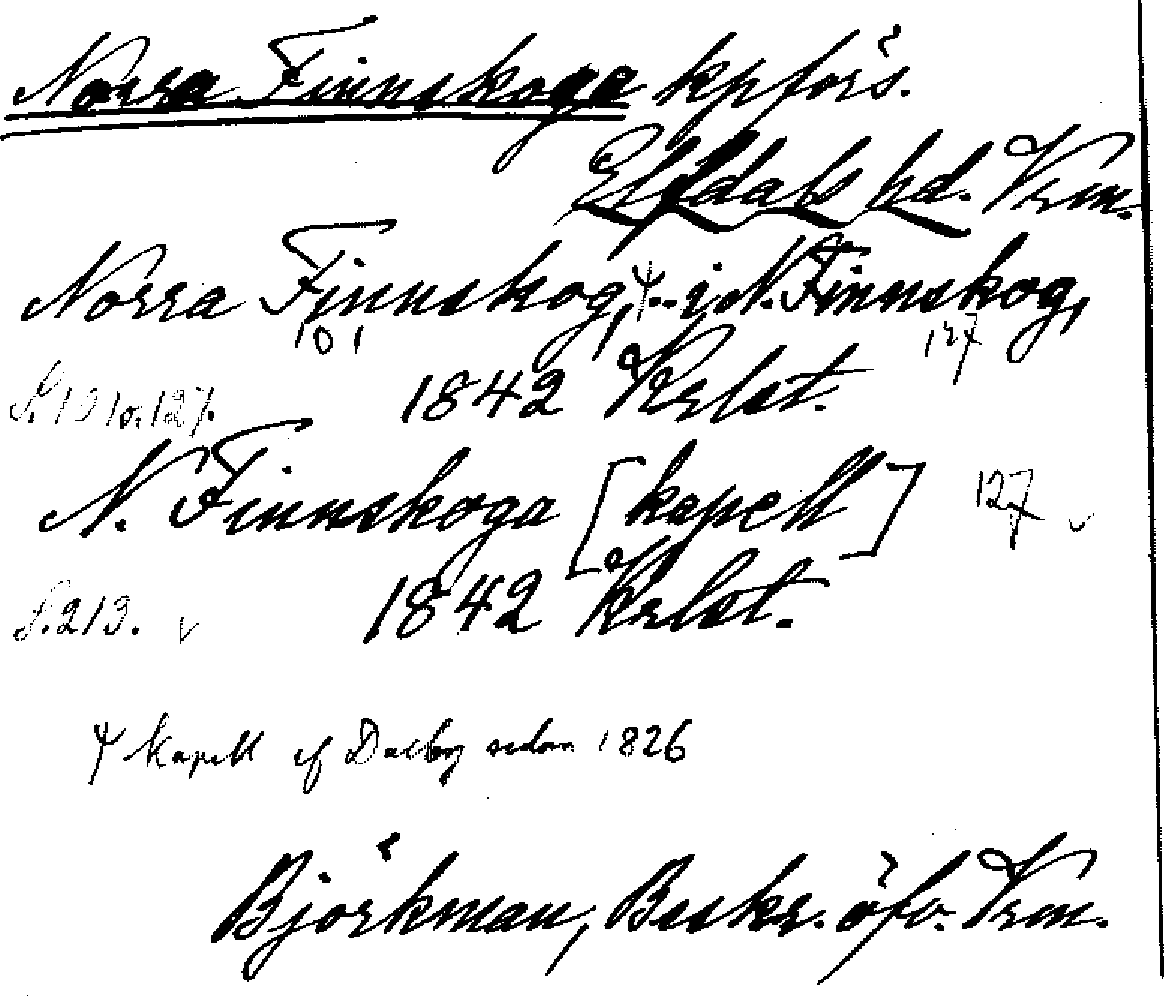 Norra Finnskoga kpförs.
Elfdals hd. Vrm.
Norra Finnskog, i N. Finnskog,
101 127
S. 101 o. 127. 1842 Krlst.
N. Finnskoga [kapell] 127
S. 219. 1842 Krlst.
Kapell af Dalby sedan 1826
Björkman, Beskr. öfv. Vrm.